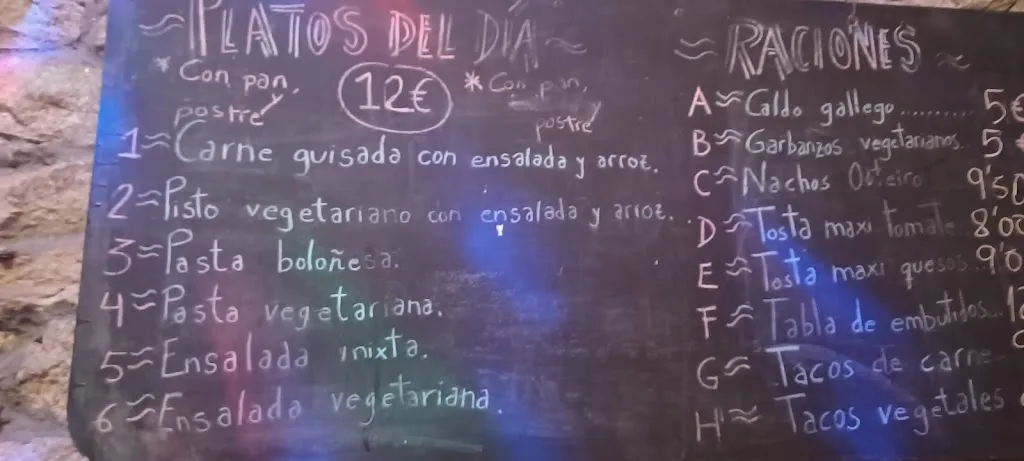 ≈ PLATOS DEL DÍA ≈
* Con pan, postre
12€
* Con pan, postre
1≈ Carne guisada con ensalada y arroz.
2≈ Pisto vegetariano con ensalada y arroz.
3≈ Pasta boloñesa.
4≈ Pasta vegetariana.
5≈ Ensalada mixta.
6≈ Ensalada vegetariana.
≈ RACIONES ≈
A≈ Caldo gallego.......... 5€
B≈ Garbanzos vegetarianos. 5
C≈ Nachos 9'50
D≈ Tosta maxi tomate 8'00
E≈ Tosta maxi quesos 9'0
F≈ Tabla de embutidos...
G≈ Tacos de carne
H≈ Tacos vegetales